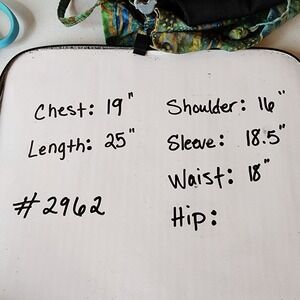 Chest: 19"
Length: 25"
#2962
Shoulder: 16"
Sleeve: 18.5"
Waist: 18"
Hip: